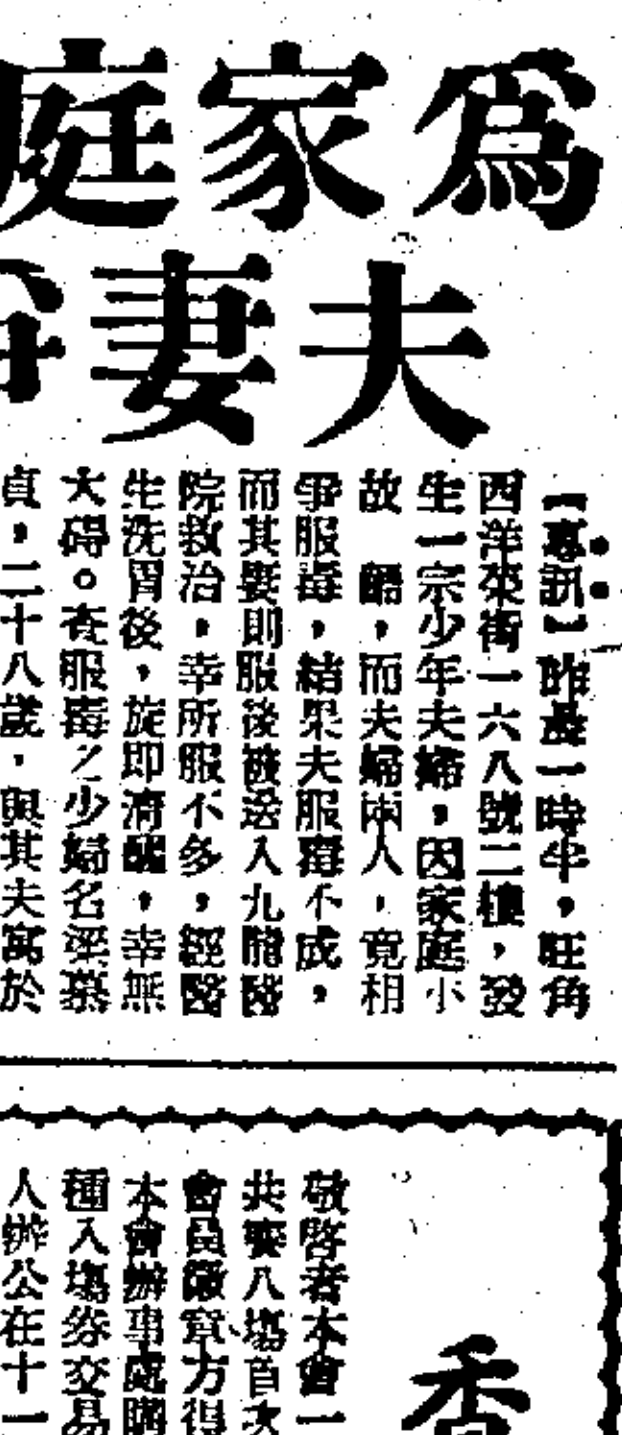 爲家庭
夫妻
【專訊】昨晨一時半，旺角
西洋菜街一六八號二樓，發
生一宗少年夫婦，因家庭小
故　齬，而夫婦兩人，竟相
爭服毒，結果夫服毒不成，
而其妻則服後被送入九龍醫
院救治，幸所服不多，經醫
生洗胃後，旋即清醒，幸無
大碍。查服毒之少婦名梁慕
貞，二十八歲，與其夫寓於
香
敬啓者本會一
共賽八塲首次
會員徽章方得
本會辦事處購
種入塲券交易
人辦公在十一